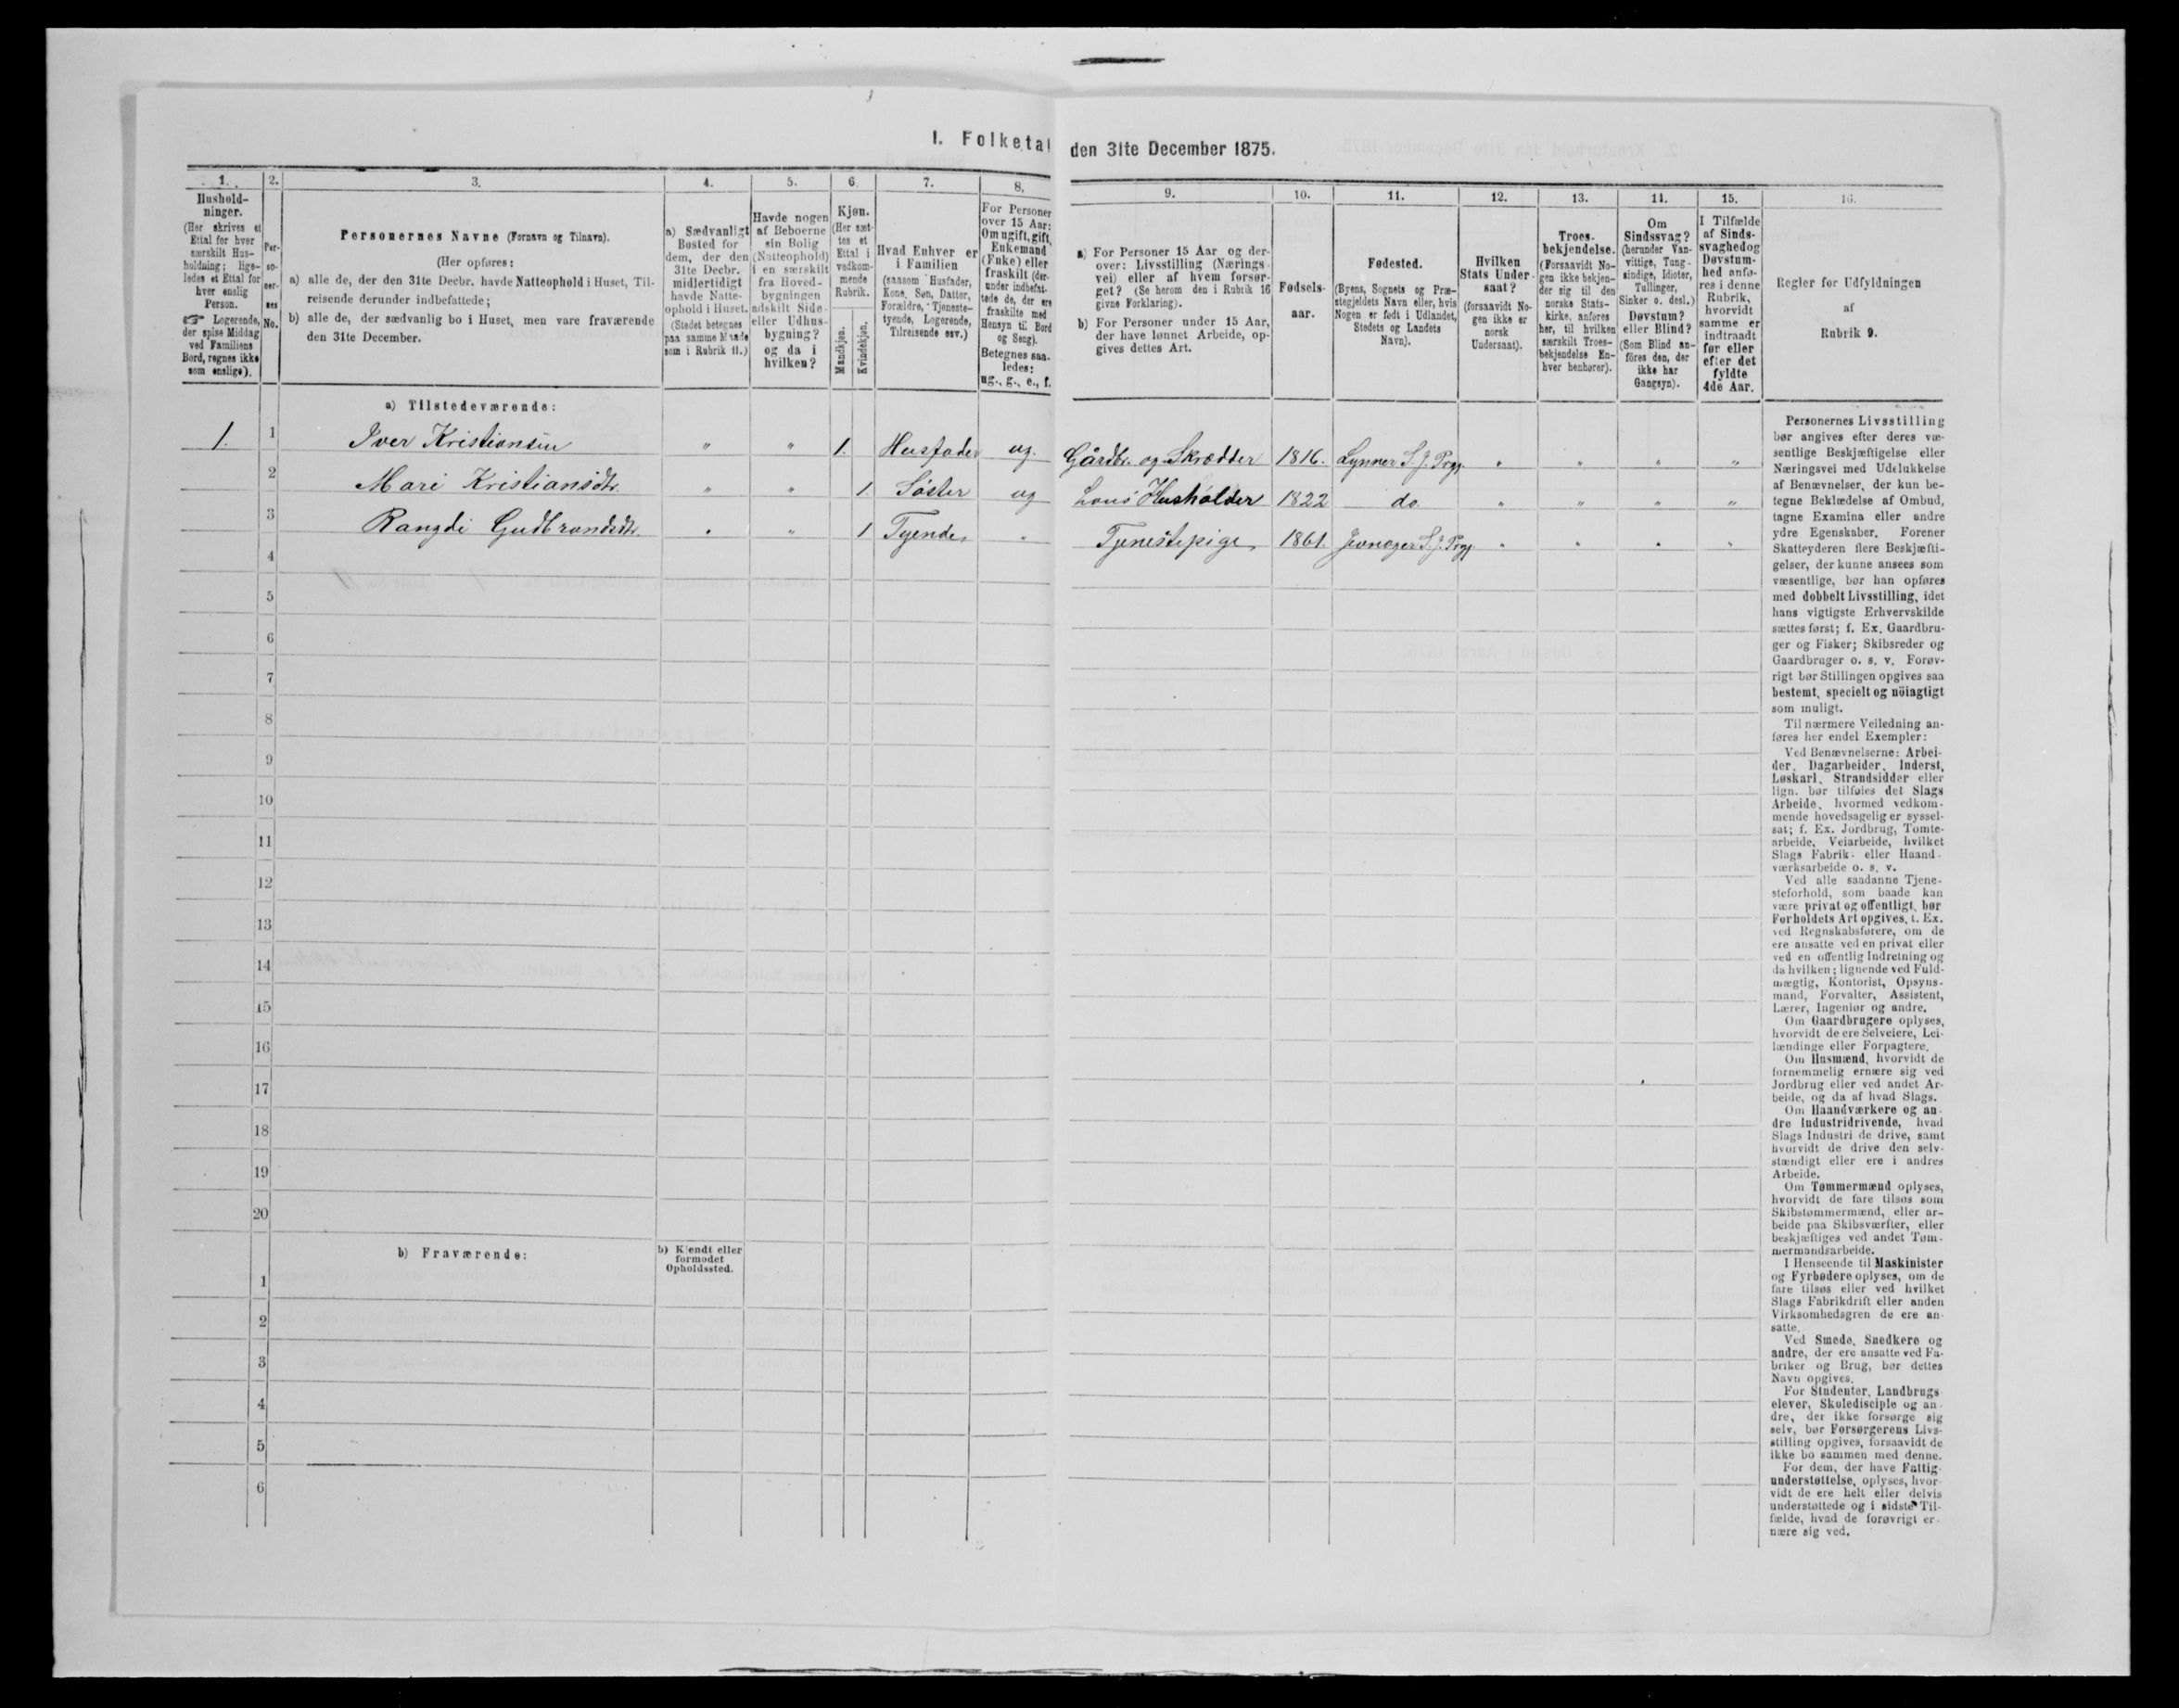 I. Folketal den 31te December 1875.
1. 2. 3. 4. 5. 6. 7. 8. 9. 10. 11. 12. 13. 14. 15. 16.
Hushold-
ninger.
(Her skrives et
Ettal for hver
særskilt Hus-
holdning; lige-
ledes et Ettal for
hver enslig
Person.
☞ Logerende,
der spise Middag
ved Familiens
Bord, regnes ikke
som enslige).
Per-
so-
ner-
nes
No.
Personernes Navne (Fornavn og Tilnavn).
(Her opføres:
a) alle de, der den 31te Decbr. havde Natteophold i Huset, Til-
reisende derunder indbefattede;
b) alle de, der sædvanlig bo i Huset, men vare fraværende
den 31te December.
a) Sædvanligt
Bosted for
dem, der den
31te Decbr.
midlertidigt
havde Natte-
ophold i Huset.
(Stedet betegnes
paa samme Maade
som i Rubrik 11.)
Havde nogen
af Beboerne
sin Bolig
(Natteophold)
i en særskilt
fra Hoved-
bygningen
adskilt Side-
eller Udhus-
bygning?
og da i
hvilken?
Kjøn.
(Her sæt-
tes et
Ettal i
vedkom-
mende
Rubrik.
Mandkjøn.
Kvindekjøn.
Hvad Enhver er
i Familien
(saasom Husfader,
Kone, Søn, Datter,
Forældre, Tjeneste-
tyende, Logerende,
Tilreisende osv.)
For Personer
over 15 Aar:
Om ugift, gift,
Enkemand
(Enke) eller
fraskilt (der-
under indbefat-
tede de, der ere
fraskilte med
Hensyn til Bord
og Seng).
Betegnes saa-
ledes:
ug., g., e., f.
a) For Personer 15 Aar og der-
over: Livsstilling (Nærings-
vei) eller af hvem forsør-
get? (Se herom den i Rubrik 16
givne Forklaring).
b) For Personer under 15 Aar,
der have lønnet Arbeide, op-
gives dettes Art.
Fødsels-
aar.
Fødested.
(Byens, Sognets og Præ-
stegjeldets Navn eller, hvis
Nogen er født i Udlandet,
Stedets og Landets
Navn).
Hvilken
Stats Under-
saat?
(forsaavidt No-
gen ikke er
norsk
Undersaat).
Troes-
bekjendelse.
(Forsaavidt No-
gen ikke bekjen-
der sig til den
norske Stats-
kirke, anføres
her, til hvilken
særskilt Troes-
bekjendelse En-
hver henhører).
Om
Sindssvag?
(herunder Van-
vittige, Tung-
sindige, Idioter,
Tullinger,
Sinker o. desl.)
Døvstum?
eller Blind?
(Som Blind an-
føres den, der
ikke har
Gangsyn).
I Tilfælde
af Sinds-
svaghed og
Døvstum-
hed anfø-
res i denne
Rubrik,
hvorvidt
samme er
indtraadt
før eller
efter det
fyldte
4de Aar.
Regler for Udfyldningen
af
Rubrik 9.
a) Tilstedeværende:
1. 1 Iver Kristiansen " " 1. Husfader ug. Gårdbr. og Skrædder 1816. Lynner S. J. Prgj. " " " "
2 Mari Kristiansdtr. " " 1. Söster ug Hans Husholder 1822 do. " " " "
3 Rangdi Gudbrandsdtr. " " 1 Tyende " Tjenestepige 1861. Jevnager S. J. Prgj. " " " "
4
5
6
7
8
9
10
11
12
13
14
15
16
17
18
19
20
b) Fraværende:
b) Kjendt eller
formodet
Opholdssted.
1
2
3
4
5
6
Personernes Livsstilling
bør angives efter deres væ-
sentlige Beskjæftigelse eller
Næringsvei med Udelukkelse
af Benævnelser, der kun be-
tegne Beklædelse af Ombud,
tagne Examina eller andre
ydre Egenskaber. Forener
Skatteyderen flere Beskjæfti-
gelser, der kunne ansees som
væsentlige, bør han opføres
med dobbelt Livsstilling, idet
hans vigtigste Erhvervskilde
sættes først; f. Ex. Gaardbru-
ger og Fisker; Skibsreder og
Gaardbruger o. s. v. Forøv-
rigt bør Stillingen opgives saa
bestemt, specielt og nöiagtigt
som muligt.
Til nærmere Veiledning an-
føres her endel Exempler:
Ved Benævnelserne: Arbei-
der, Dagarbeider, Inderst,
Løskarl, Strandsidder eller
lign. bør tilføies det Slags
Arbeide, hvormed vedkom-
mende hovedsagelig er syssel-
sat; f. Ex. Jordbrug, Tomte-
arbeide, Veiarbeide, hvilket
Slags Fabrik- eller Haand-
værksarbeide o. s. v.
Ved alle saadanne Tjene-
steforhold, som baade kan
være privat og offentligt, bør
Forholdets Art opgives, f. Ex.
ved Regnskabsførere, om de
ere ansatte ved en privat eller
ved en offentlig Indretning og
da hvilken; lignende ved Fuld-
mægtig, Kontorist, Opsyns-
mand, Forvalter, Assistent,
Lærer, Ingeniør og andre.
Om Gaardbrugere oplyses,
hvorvidt de ere Selveiere, Lei-
lændinge eller Forpagtere.
Om Husmænd, hvorvidt de
fornemmelig ernære sig ved
Jordbrug eller ved andet Ar-
beide, og da af hvad Slags.
Om Haandværkere og an-
dre Industridrivende, hvad
Slags Industri de drive, samt
hvorvidt de drive den selv-
stændigt eller ere i andres
Arbeide.
Om Tømmermænd oplyses,
hvorvidt de fare tilsøs som
Skibstømmermænd, eller ar-
beide paa Skibsværfter, eller
beskjæftiges ved andet Tøm-
mermandsarbeide.
I Henseende til Maskinister
og Fyrbødere oplyses, om de
fare tilsøs eller ved hvilket
Slags Fabrikdrift eller anden
Virksomhedsgren de ere an-
satte.
Ved Smede, Snedkere og
andre, der ere ansatte ved Fa-
briker og Brug, bør dettes
Navn opgives.
For Studenter, Landbrugs-
elever, Skoledisciple og an-
dre, der ikke forsørge sig
selv, bør Forsørgerens Livs-
stilling opgives, forsaavidt de
ikke bo sammen med denne.
For dem, der have Fattig-
understøttelse, oplyses, hvor-
vidt de ere helt eller delvis
understøttede og i sidste Til-
fælde, hvad de forøvrigt er-
nære sig ved.